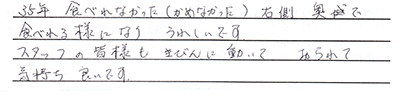 35年 食べれなかった(かめなかった) 右側 奥歯で
食べれる様になり うれしいです
スタッフの皆様も きびんに動いて おられて
気持ち 良いです